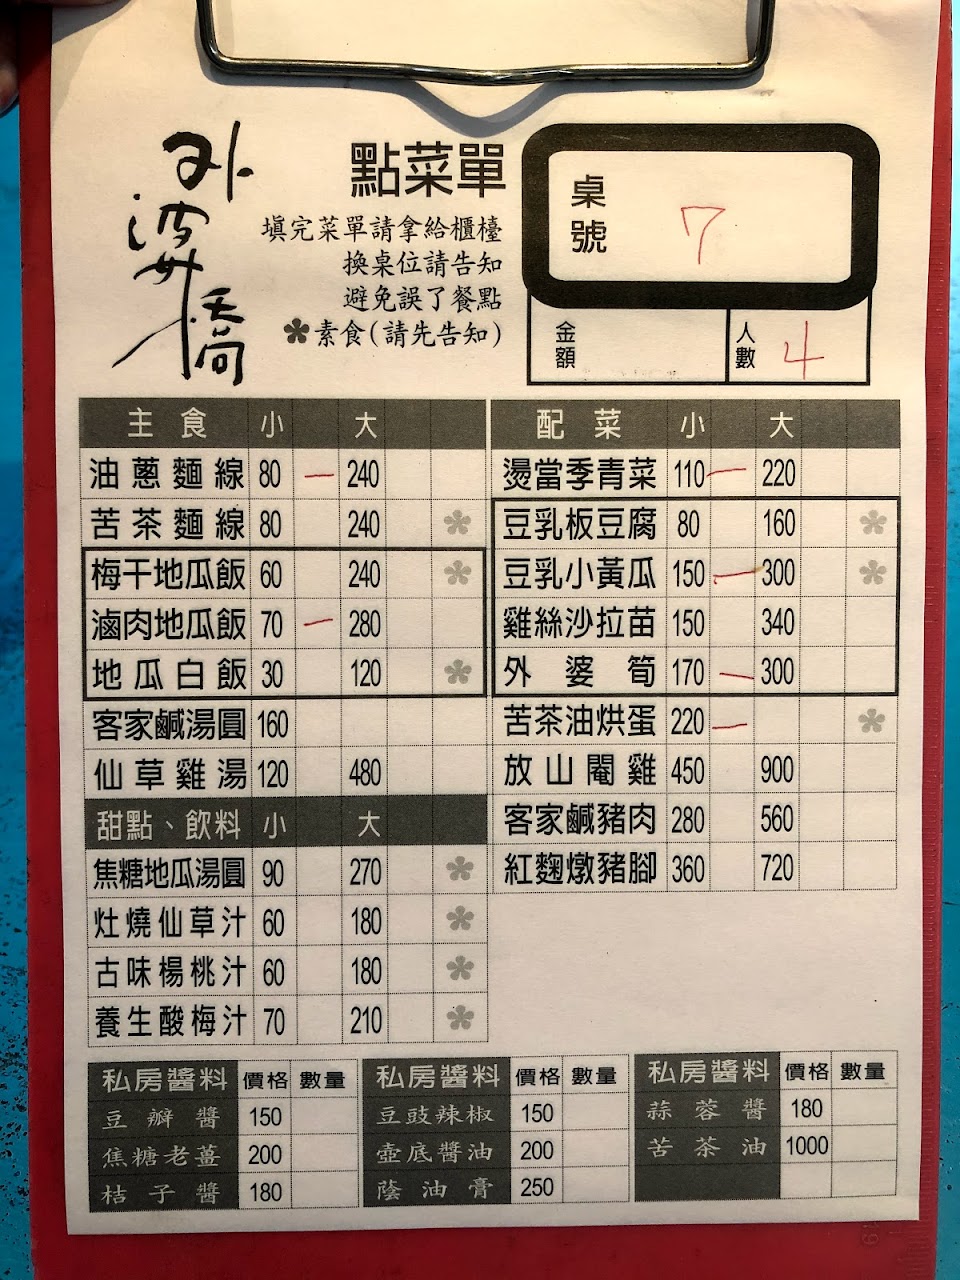 外婆橋
點菜單
填完菜單請拿給櫃檯
換桌位請告知
避免誤了餐點
素食(請先告知)
桌號 7
金額 人數 4
主食 小 大
油蔥麵線 80 一 240
苦茶麵線 80 240
梅干地瓜飯 60 240
滷肉地瓜飯 70 一 280
地瓜白飯 30 120
客家鹹湯圓 160
仙草雞湯 120 480
甜點、飲料 小 大
焦糖地瓜湯圓 90 270
灶燒仙草汁 60 180
古味楊桃汁 60 180
養生酸梅汁 70 210
配菜 小 大
燙當季青菜 110 一 220
豆乳板豆腐 80 160
豆乳小黃瓜 150 一 300
雞絲沙拉苗 150 340
外婆筍 170 一 300
苦茶油烘蛋 220 一
放山閹雞 450 900
客家鹹豬肉 280 560
紅麴燉豬腳 360 720
私房醬料 價格 數量
豆瓣醬 150
焦糖老薑 200
桔子醬 180
私房醬料 價格 數量
豆豉辣椒 150
壺底醬油 200
蔭油膏 250
私房醬料 價格 數量
蒜蓉醬 180
苦茶油 1000